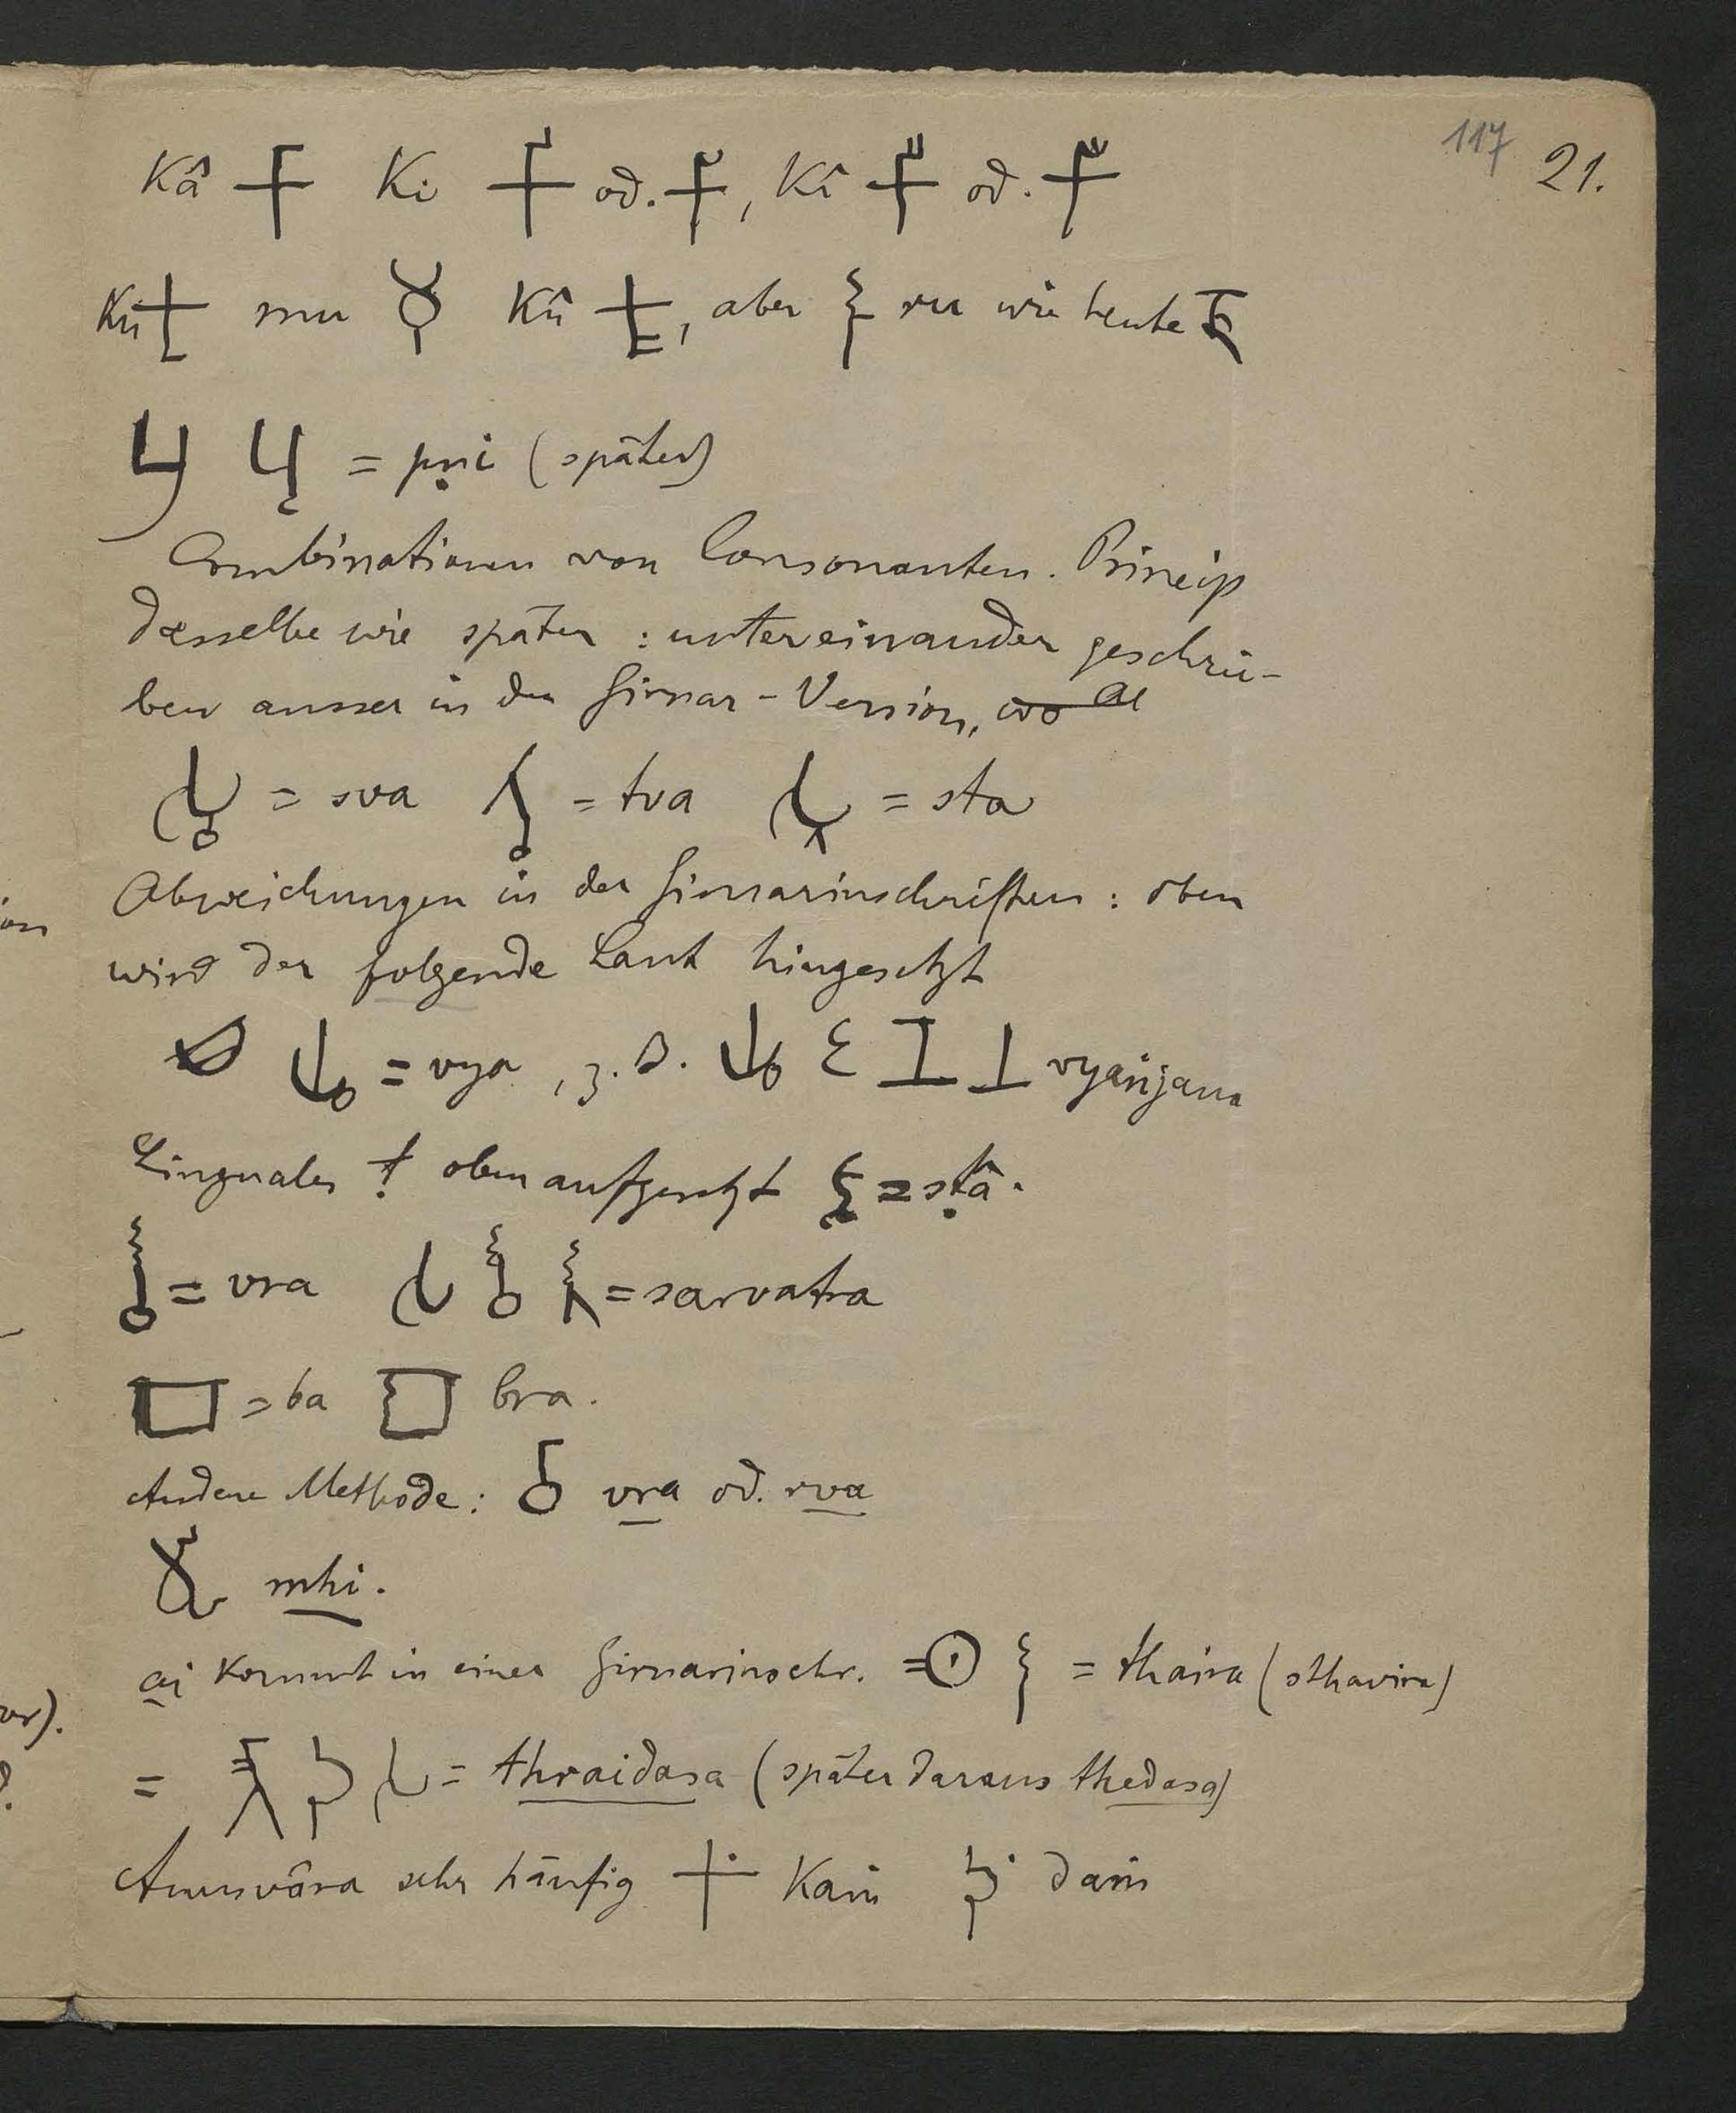 117 21.
Kâ 𑀓𑀸 Ki 𑀓𑀺 od. 𑀓𑀺, Kî 𑀓𑀻 od. 𑀓𑀻
Ku 𑀓𑀼 mu 𑀫𑀼 Kû 𑀓𑀽, aber 𑀭𑀼 ru wie heute रु
= pṛi (später)
Combinationen von Consonanten. Princip
dasselbe wie später : untereinander geschrie-
ben ausser in der Girnar-Version,
𑀲𑁆𑀯 = sva 𑀢𑁆𑀯 = tva 𑀲𑁆𑀢 = sta
Abweichungen in der Girnarinschriften : oben
wird der folgende Laut hingesetzt
= vya, z. B. vyañjana
Linguales ṭ oben aufgesetzt = sṭâ.
= vra = sarvatra
𑀩 = ba bra.
Andere Methode : vra od. rva
mhi.
ai kommt in einer Girnarinschr. 𑀣𑁃𑀭 = thaira (sthavira)
= = thraidasa (später daraus thedasa)
Anusvâra sehr häufig 𑀓𑀁 Kaṁ 𑀤𑀁 daṁ